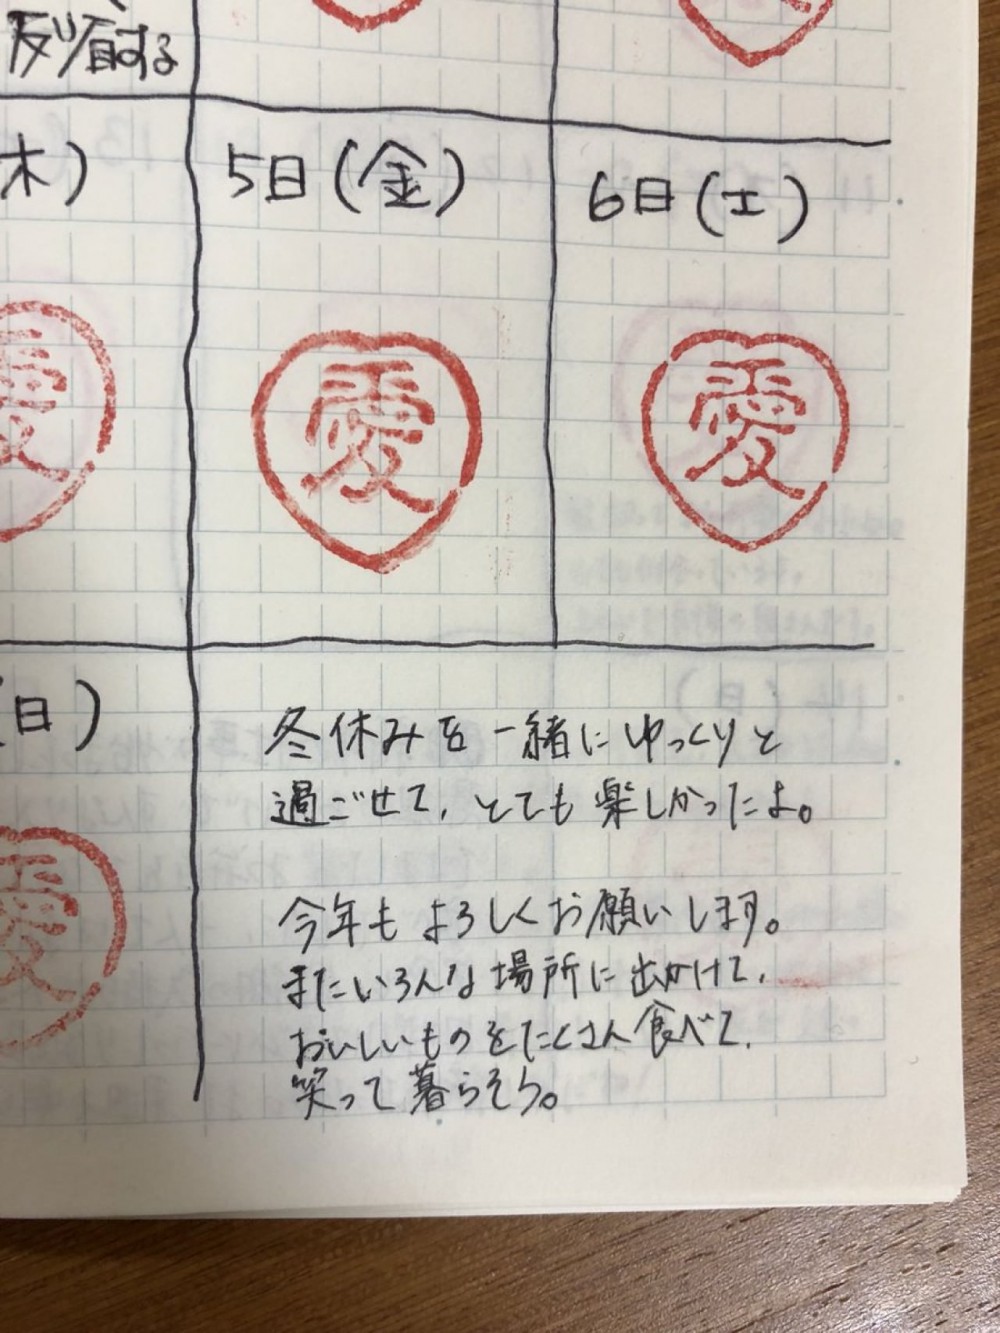 反省する
木)
5日(金)
6日(土)
愛
愛
愛
(日)
愛
冬休みを一緒にゆっくりと
過ごせて、とても楽しかったよ。
今年もよろしくお願いします。
またいろんな場所に出かけて、
おいしいものをたくさん食べて、
笑って暮らそう。